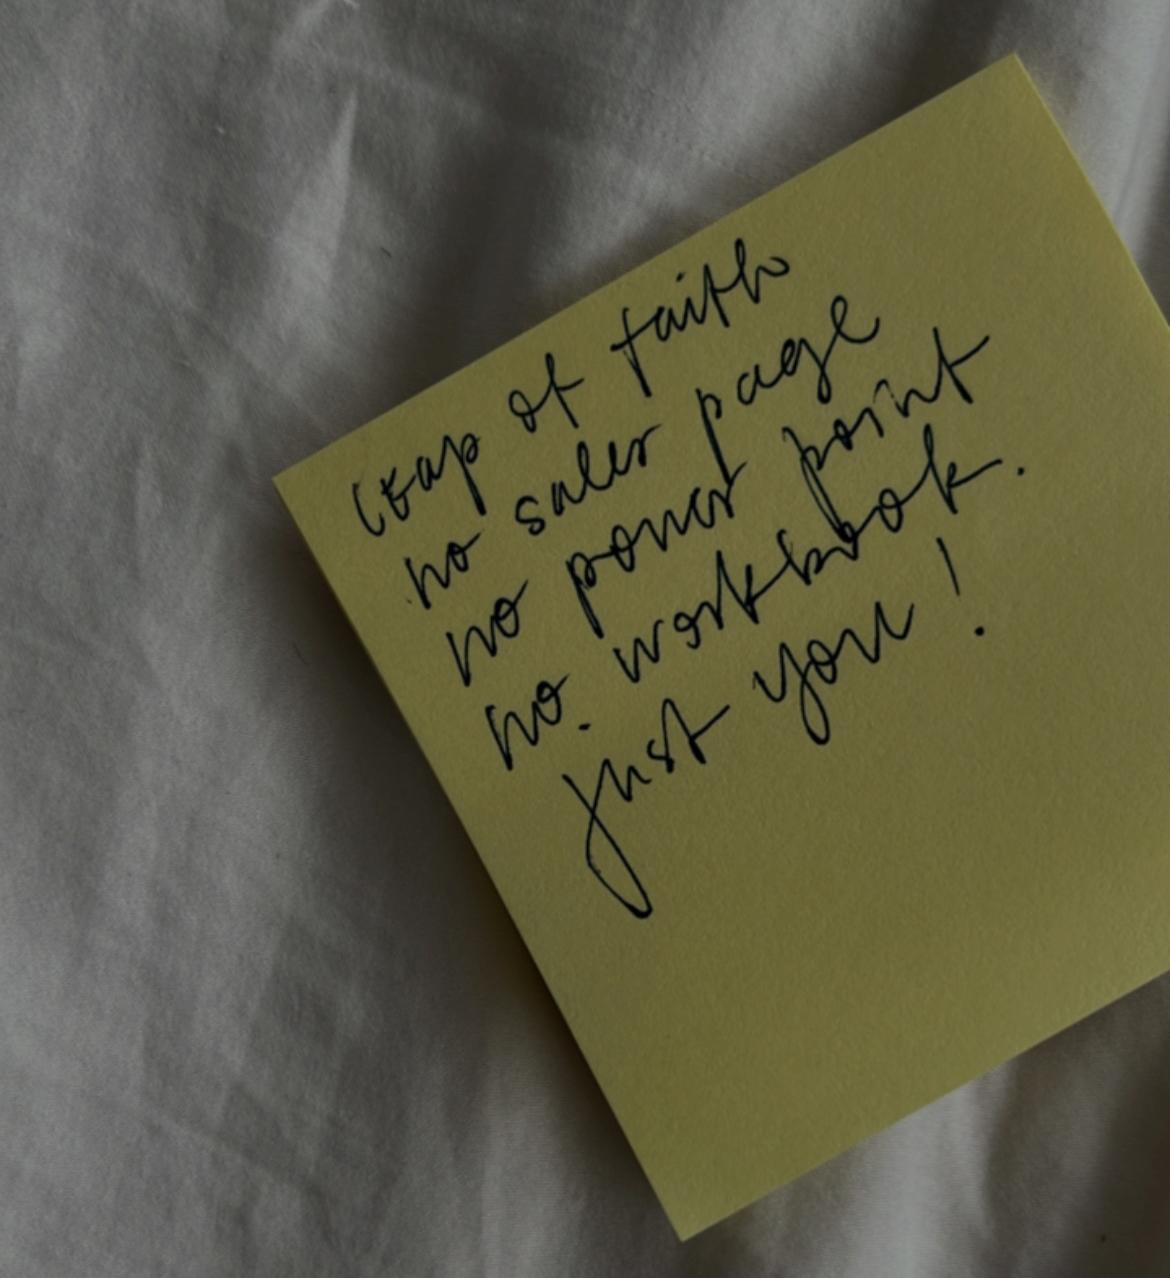 leap of faith
no sales page
no power point
no workbook.
just you!